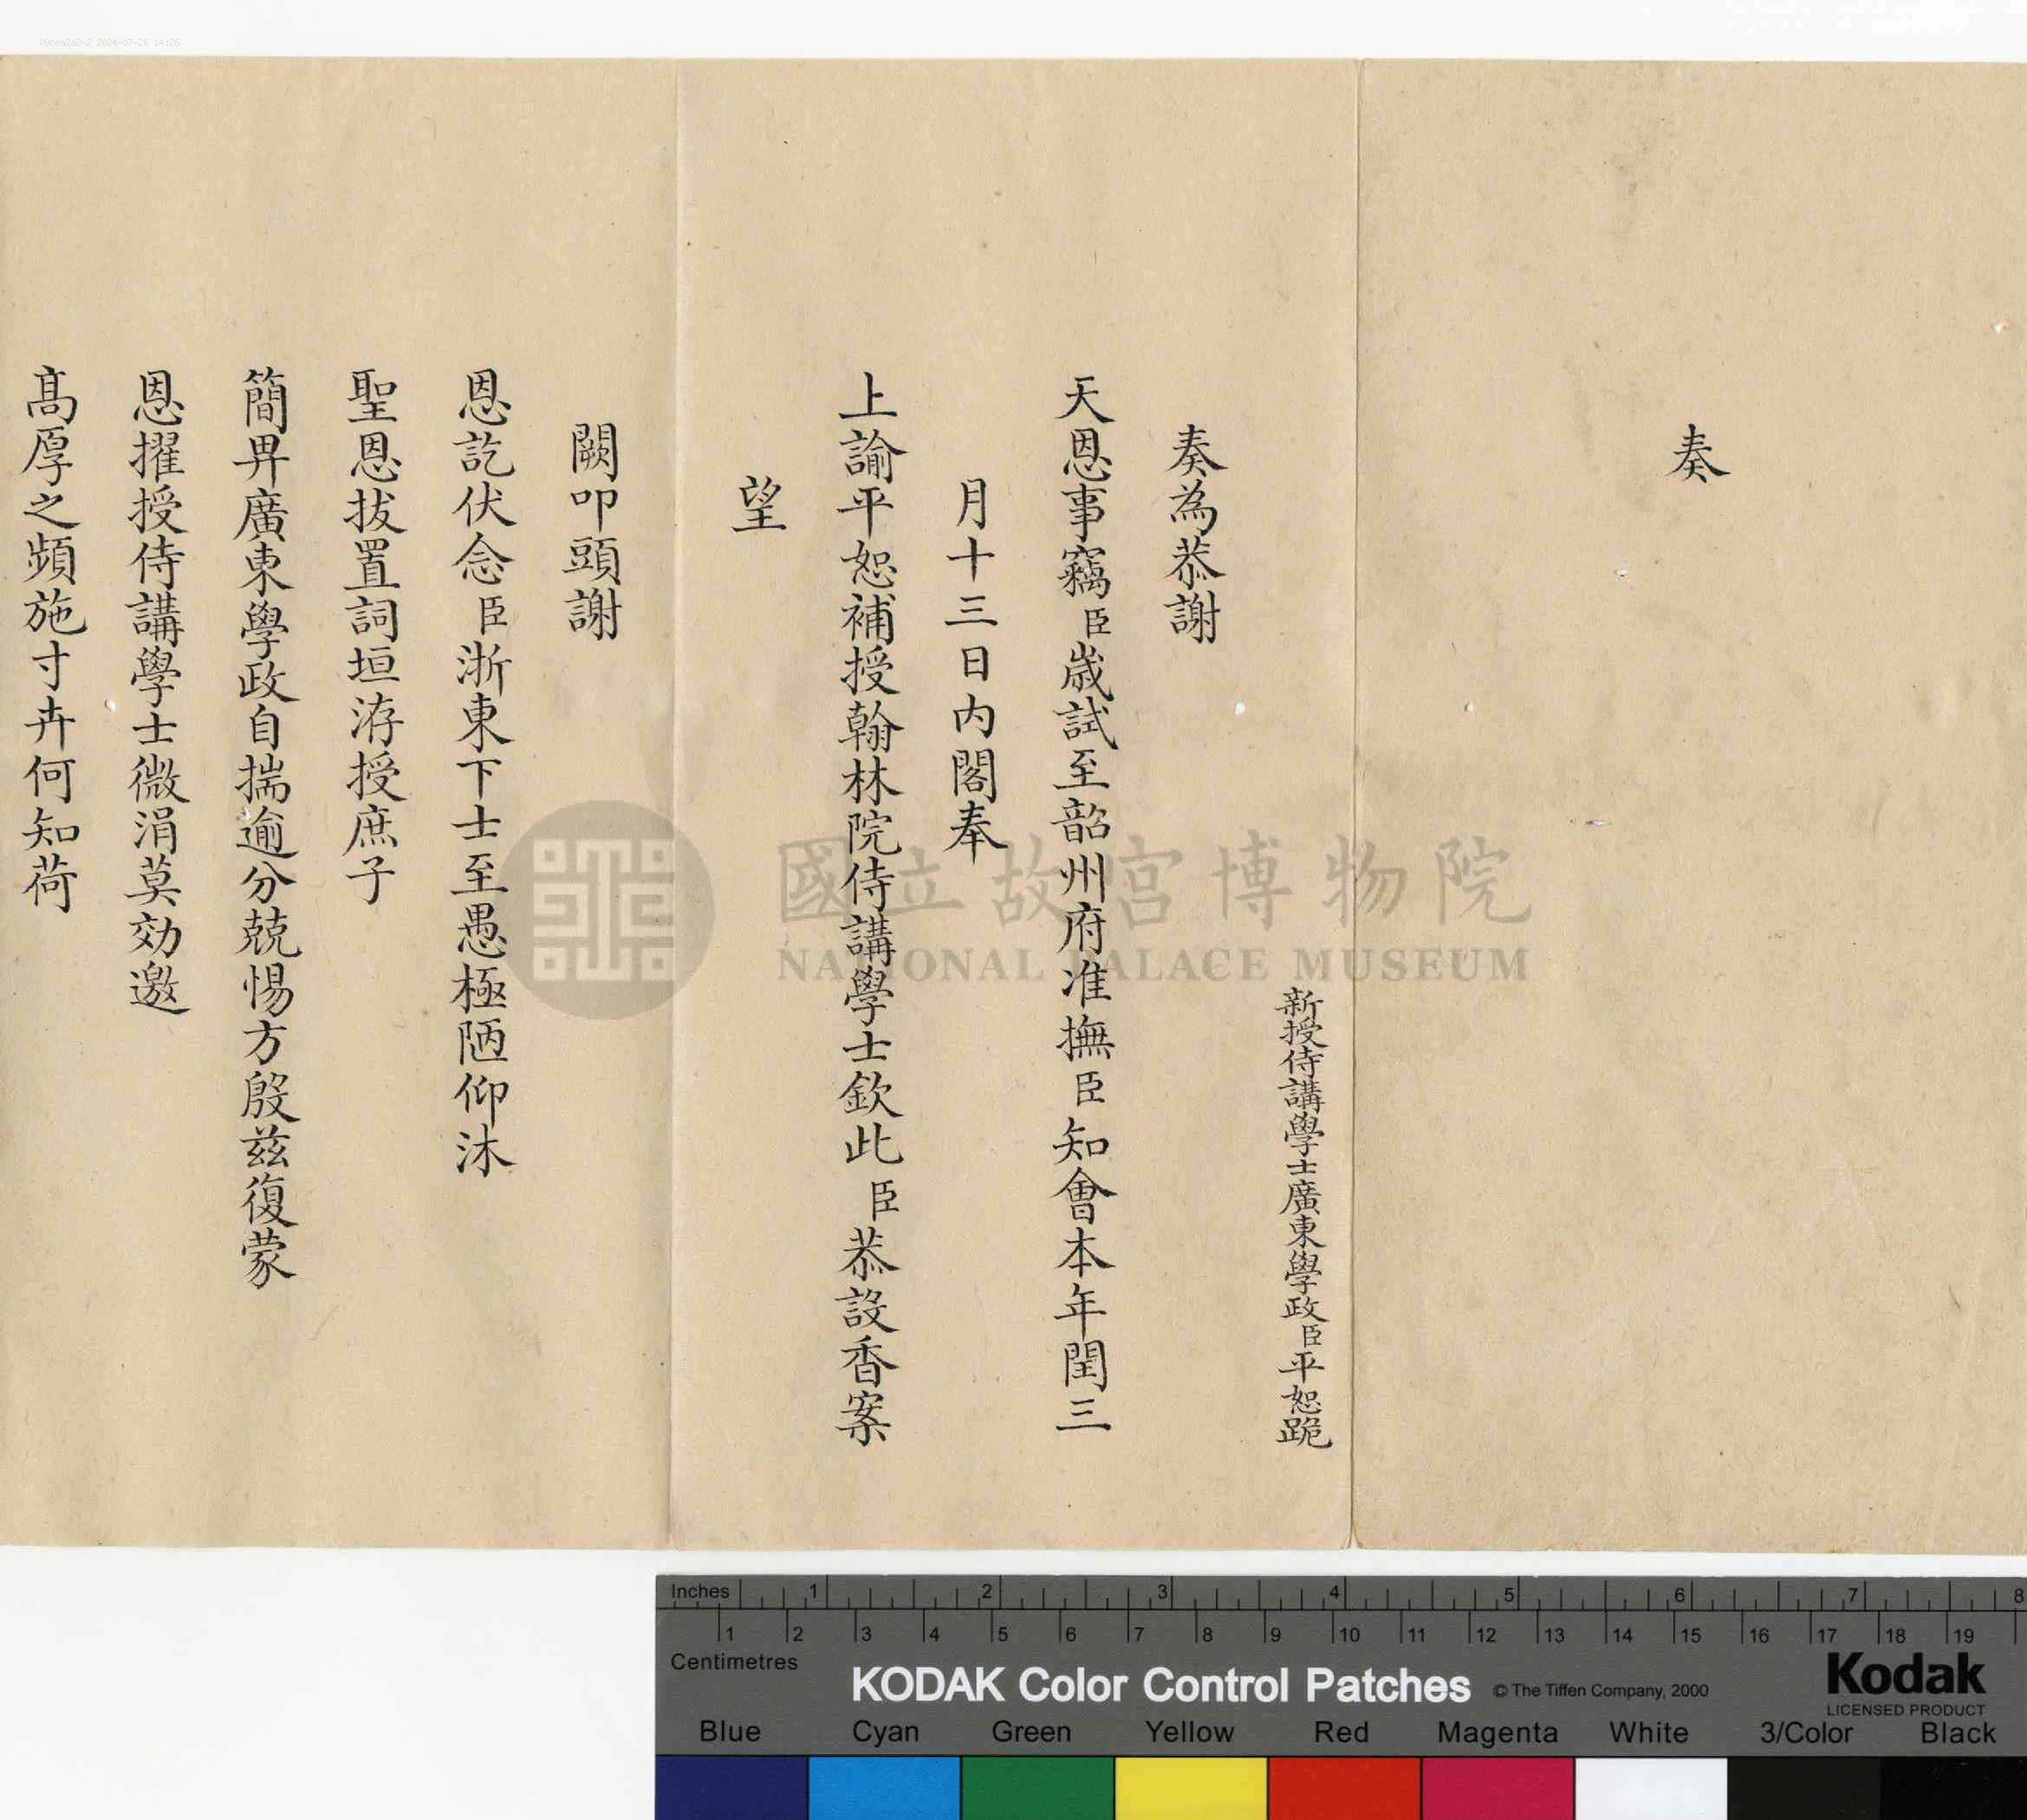 奏
新授侍講學士廣東學政臣平恕跪
奏為恭謝
天恩事竊臣歲試至韶州府准撫臣知會本年閏三
月十三日內閣奉
上諭平恕補授翰林院侍講學士欽此臣恭設香案
望
闕叩頭謝
恩訖伏念臣浙東下士至愚極陋仰沐
聖恩拔置詞垣洊授庶子
簡畀廣東學政自揣逾分兢惕方殷茲復蒙
恩擢授侍講學士微涓莫効邀
高厚之頻施寸卉何知荷
國立故宮博物院
NATIONAL PALACE MUSEUM
09cea2a2-2 2024-07-26 14:26
Inches 1 2 3 4 5 6 7 8
1 2 3 4 5 6 7 8 9 10 11 12 13 14 15 16 17 18 19
Centimetres
KODAK Color Control Patches © The Tiffen Company, 2000
Kodak
LICENSED PRODUCT
Blue Cyan Green Yellow Red Magenta White 3/Color Black